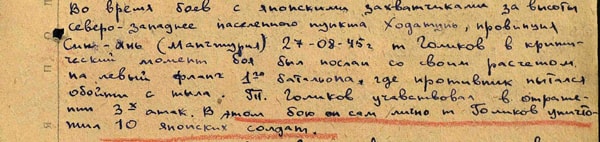 Во время боев с японскими захватчиками за высоты
северо-западнее населенного пункта Ходатунь, провинция
Синь-Янь (Манчжурия) 27-08-45г т Голиков в крити-
ческий момент боя был послан со своим расчетом
на левый фланг 1го батальона, где противник пытался
обойти с тыла. Т. Голиков участвовал в отраже-
нии 3х атак. В этом бою он сам лично т Голиков уничто-
жил 10 японских солдат.